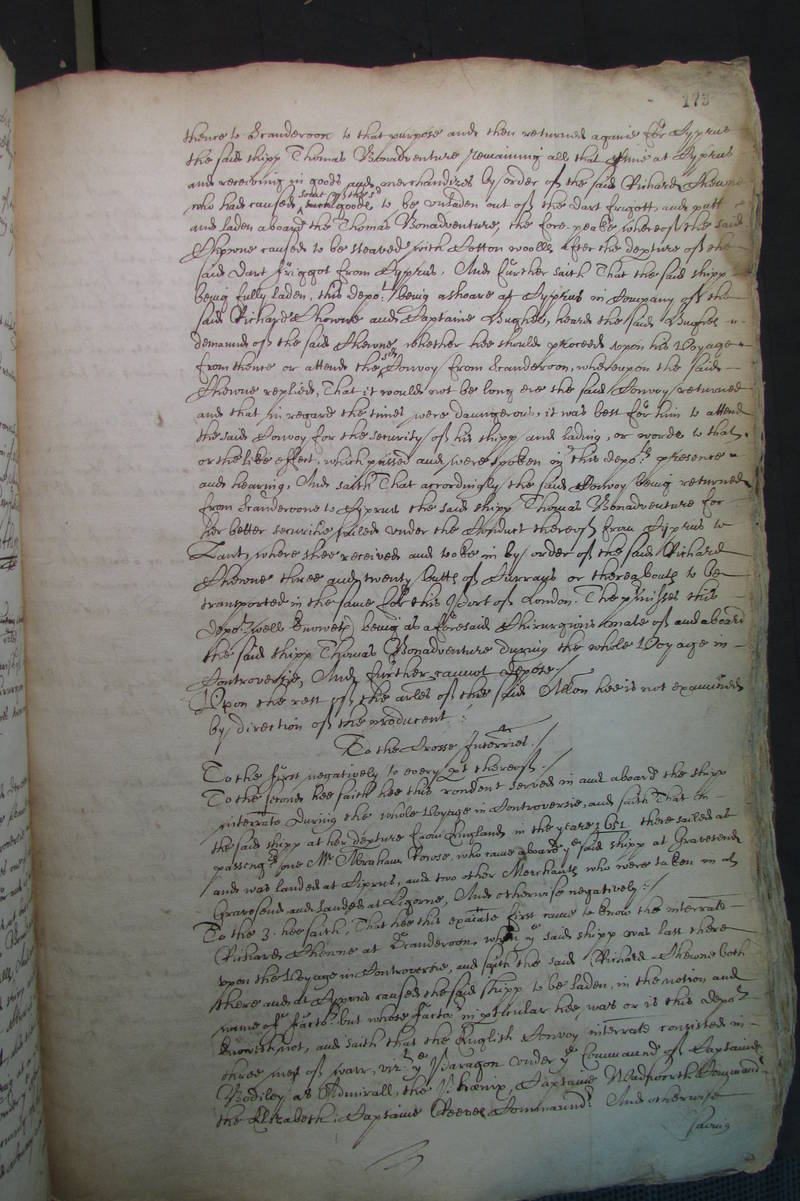 173
thence to Scanderoon to that purpose and then returned againe for Cyprus
the said shipp Thomas Bonadventure remaining all that time at Cyprus
and receiving in goods and merchandizes by order of the said Richard
who had caused some of the sd goods to be unladen out of the Dart frigott, and putt
and laden aboard the Thomas Bonadventure, the fore-peake whereof the said
caused to be steaved with Cotton wooll after the depture of the
said Dart friggot from Cyprus. And further saith That the said shipp
being fully laden, this depot being ashoare at Cyprus in Company of the
said Richard and Captaine Hughes, heard the said Hughes
demaund of the said whether hee should proceed upon his Voyage
from thence or attend the Convoy from Scanderoon, whereupon the said
replied, That it would not be long ere the said Convoy returned
and that in regard the times were daungerous, it was best for him to attend
the said Convoy for the security of his shipp and lading, or words to that
or the like effect, which passed and were spoken in this depots presence
and hearing, And saith That accordingly the said Convoy being returned
from Scanderoone to Cyprus the said shipp Thomas Bonadventure for
her better securitie sailed under the Conduct thereof from Cyprus to
Zant, where shee received and tooke in by order of the said Richard
three and twenty Butts of Currans or thereabouts to be
transported in the same for this Port of London. The pmisses this
depot well knoweth being as aforesaid Chirurgions mate of and aboard
the said shipp Thomas Bonadventure during the whole Voyage in
Controversie, And further cannot depose /
Upon the rest of the arles of the said Allon hee is not examined
by direction of the producent :
To the Crosse Interries. /
To the first negatively to every pt thereof. /
To the second hee saith hee this rondent served in and aboard the shipp
interrate during the whole Voyage in Controversie, and saith That in
the said shipp at her depture from England in the yeare 1651 there sailed as
passengrs one Mr Abraham, who came aboard ye said shipp at Gravesend
and was landed at Cyprus, and two other Merchants who were taken in at
Gravesend and landed at Ligorne, And otherwise negatively :/
To the 3. hee saith, That hee this examate first came to know the interrate
Richard at Scanderoon, when ye said shipp was last there
upon the Voyage in Controversie, and saith the said Richard both
there and at Cyprus caused the said shipp to be laden, in the notion and
name of factor but whose factor in pticular hee was or is this depot
knoweth not, and saith that the English Convoy interrate consisted in
three men of warr, vizt ye Paragon under ye Commaund of Captaine
Bodiley as Admirall, the Phoenix, Captaine Wadsworth Commandr
the Elizabeth Captaine Reeves Commaundr And otherwise
saving